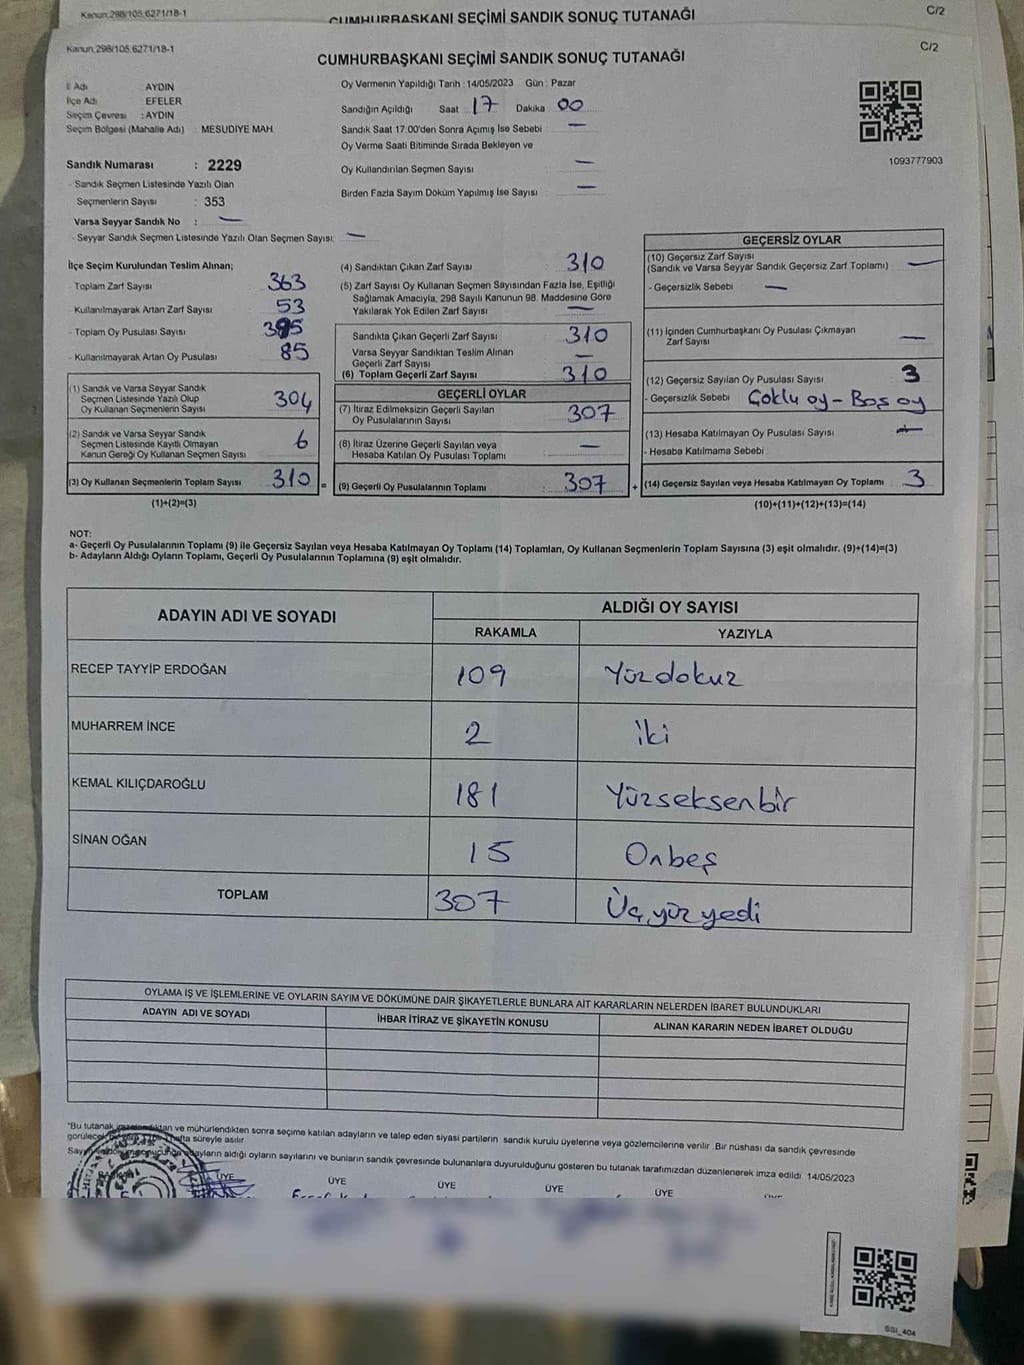 Kanun,298/105,6271/18-1
CUMHURBAŞKANI SEÇİMİ SANDIK SONUÇ TUTANAĞI
C/2
Kanun,298/105,6271/18-1
CUMHURBAŞKANI SEÇİMİ SANDIK SONUÇ TUTANAĞI
C/2
İl Adı AYDIN
İlçe Adı EFELER
Seçim Çevresi : AYDIN
Seçim Bölgesi (Mahalle Adı) MESUDİYE MAH.
Sandık Numarası : 2229
- Sandık Seçmen Listesinde Yazılı Olan
Seçmenlerin Sayısı : 353
Varsa Seyyar Sandık No : —
- Seyyar Sandık Seçmen Listesinde Yazılı Olan Seçmen Sayısı: —
Oy Vermenin Yapıldığı Tarih : 14/05/2023 Gün : Pazar
Sandığın Açıldığı Saat 17 Dakika 00
Sandık Saat 17:00'den Sonra Açımış İse Sebebi —
Oy Verme Saati Bitiminde Sırada Bekleyen ve
Oy Kullandırılan Seçmen Sayısı —
Birden Fazla Sayım Döküm Yapılmış İse Sayısı —
1093777903
İlçe Seçim Kurulundan Teslim Alınan;
Toplam Zarf Sayısı 363
- Kullanılmayarak Artan Zarf Sayısı 53
- Toplam Oy Pusulası Sayısı 395
- Kullanılmayarak Artan Oy Pusulası 85
(1) Sandık ve Varsa Seyyar Sandık
Seçmen Listesinde Yazılı Olup
Oy Kullanan Seçmenlerin Sayısı 304
(2) Sandık ve Varsa Seyyar Sandık
Seçmen Listesinde Kayıtlı Olmayan
Kanun Gereği Oy Kullanan Seçmen Sayısı 6
(3) Oy Kullanan Seçmenlerin Toplam Sayısı 310 =
(1)+(2)=(3)
(4) Sandıktan Çıkan Zarf Sayısı 310
(5) Zarf Sayısı Oy Kullanan Seçmen Sayısından Fazla İse, Eşitliği
Sağlamak Amacıyla, 298 Sayılı Kanunun 98. Maddesine Göre
Yakılarak Yok Edilen Zarf Sayısı —
Sandıkta Çıkan Geçerli Zarf Sayısı 310
Varsa Seyyar Sandıktan Teslim Alınan
Geçerli Zarf Sayısı —
(6) Toplam Geçerli Zarf Sayısı 310
GEÇERLİ OYLAR
(7) İtiraz Edilmeksizin Geçerli Sayılan
Oy Pusulalarının Sayısı 307
(8) İtiraz Üzerine Geçerli Sayılan veya
Hesaba Katılan Oy Pusulası Toplamı —
(9) Geçerli Oy Pusulalarının Toplamı 307 +
GEÇERSİZ OYLAR
(10) Geçersiz Zarf Sayısı
(Sandık ve Varsa Seyyar Sandık Geçersiz Zarf Toplamı) —
- Geçersizlik Sebebi —
(11) İçinden Cumhurbaşkanı Oy Pusulası Çıkmayan
Zarf Sayısı —
(12) Geçersiz Sayılan Oy Pusulası Sayısı 3
- Geçersizlik Sebebi Çoklu oy - Boş oy
(13) Hesaba Katılmayan Oy Pusulası Sayısı —
- Hesaba Katılmama Sebebi
(14) Geçersiz Sayılan veya Hesaba Katılmayan Oy Toplamı 3
(10)+(11)+(12)+(13)=(14)
NOT:
a- Geçerli Oy Pusulalarının Toplamı (9) ile Geçersiz Sayılan veya Hesaba Katılmayan Oy Toplamı (14) Toplamları, Oy Kullanan Seçmenlerin Toplam Sayısına (3) eşit olmalıdır. (9)+(14)=(3)
b- Adayların Aldığı Oyların Toplamı, Geçerli Oy Pusulalarının Toplamına (9) eşit olmalıdır.
ADAYIN ADI VE SOYADI ALDIĞI OY SAYISI
RAKAMLA YAZIYLA
RECEP TAYYİP ERDOĞAN 109 Yüzdokuz
MUHARREM İNCE 2 iki
KEMAL KILIÇDAROĞLU 181 Yüzseksenbir
SİNAN OĞAN 15 Onbeş
TOPLAM 307 Üç yüz yedi
OYLAMA İŞ VE İŞLEMLERİNE VE OYLARIN SAYIM VE DÖKÜMÜNE DAİR ŞİKAYETLERLE BUNLARA AİT KARARLARIN NELERDEN İBARET BULUNDUKLARI
ADAYIN ADI VE SOYADI İHBAR İTİRAZ VE ŞİKAYETİN KONUSU ALINAN KARARIN NEDEN İBARET OLDUĞU
*Bu tutanak imzalandıktan ve mühürlendikten sonra seçime katılan adayların ve talep eden siyasi partilerin sandık kurulu üyelerine veya gözlemcilerine verilir. Bir nüshası da sandık çevresinde
hafta süreyle asılır.
adayların aldığı oyların sayılarını ve bunların sandık çevresinde bulunanlara duyurulduğunu gösteren bu tutanak tarafımızdan düzenlenerek imza edildi. 14/05/2023
ÜYE ÜYE ÜYE ÜYE ÜYE
SSI_404